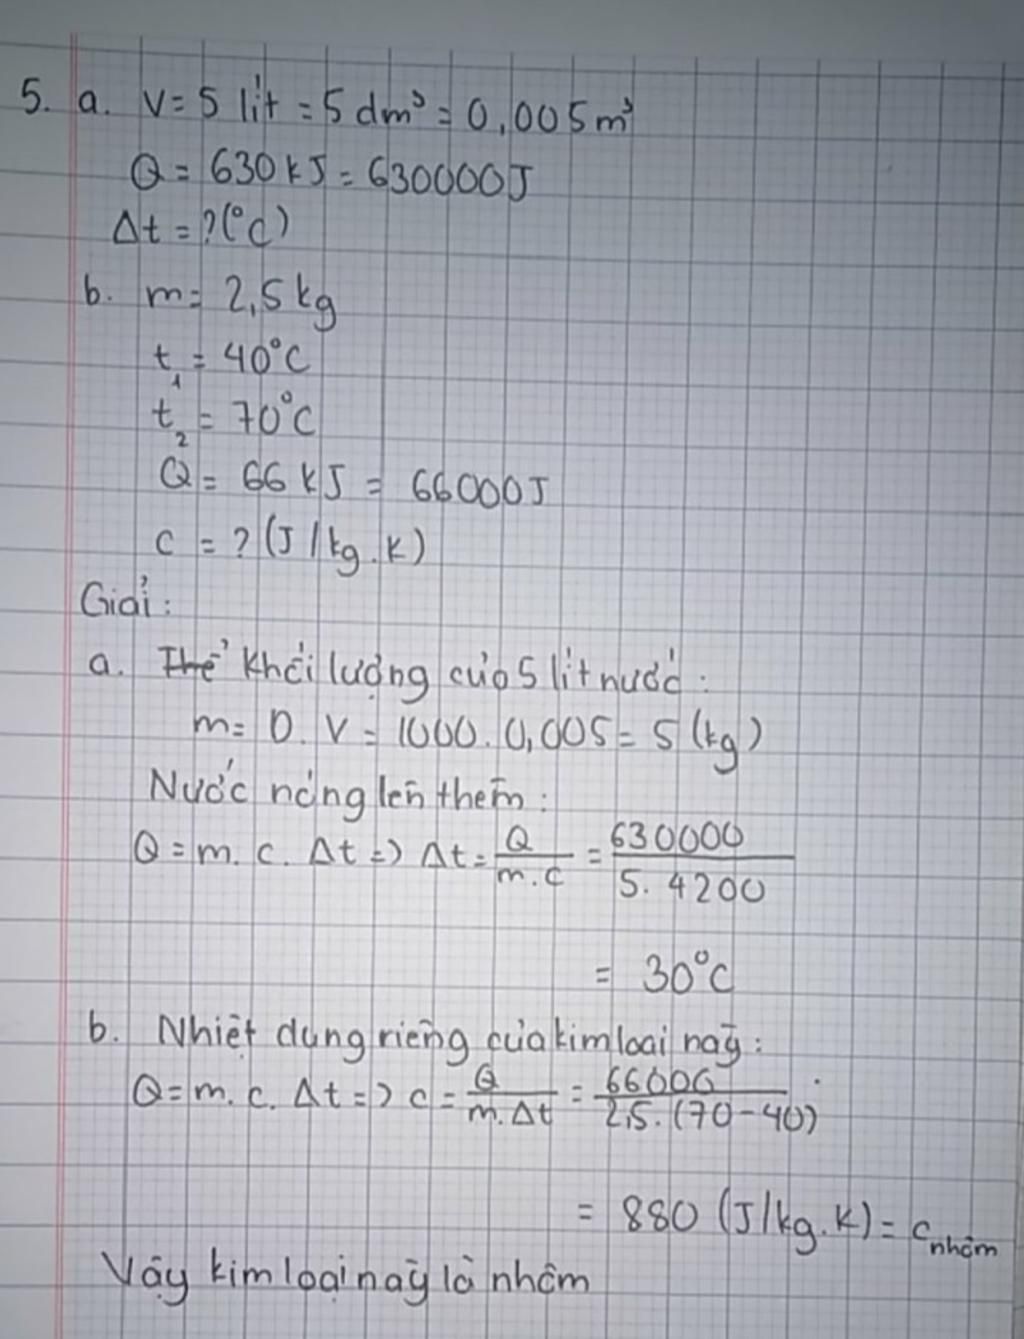 5. a. V = 5 lít = 5 dm³ = 0,005 m³
Q = 630 kJ = 630000J
Δt = ? (°C)
b. m = 2,5 kg
t₁ = 40°C
t₂ = 70°C
Q = 66 kJ = 66000J
c = ? (J/kg.K)
Giải:
a. Thể Khối lượng của 5 lít nước:
m = D. V = 1000. 0,005 = 5 (kg)
Nước nóng lên thêm:
Q = m. c. Δt => Δt = Q / m.c = 630000 / 5. 4200
= 30°C
b. Nhiệt dung riêng của kim loại này:
Q = m. c. Δt => c = Q / m. Δt = 66000 / 2,5. (70-40)
= 880 (J/kg.K) = c nhôm
Vậy kim loại này là nhôm